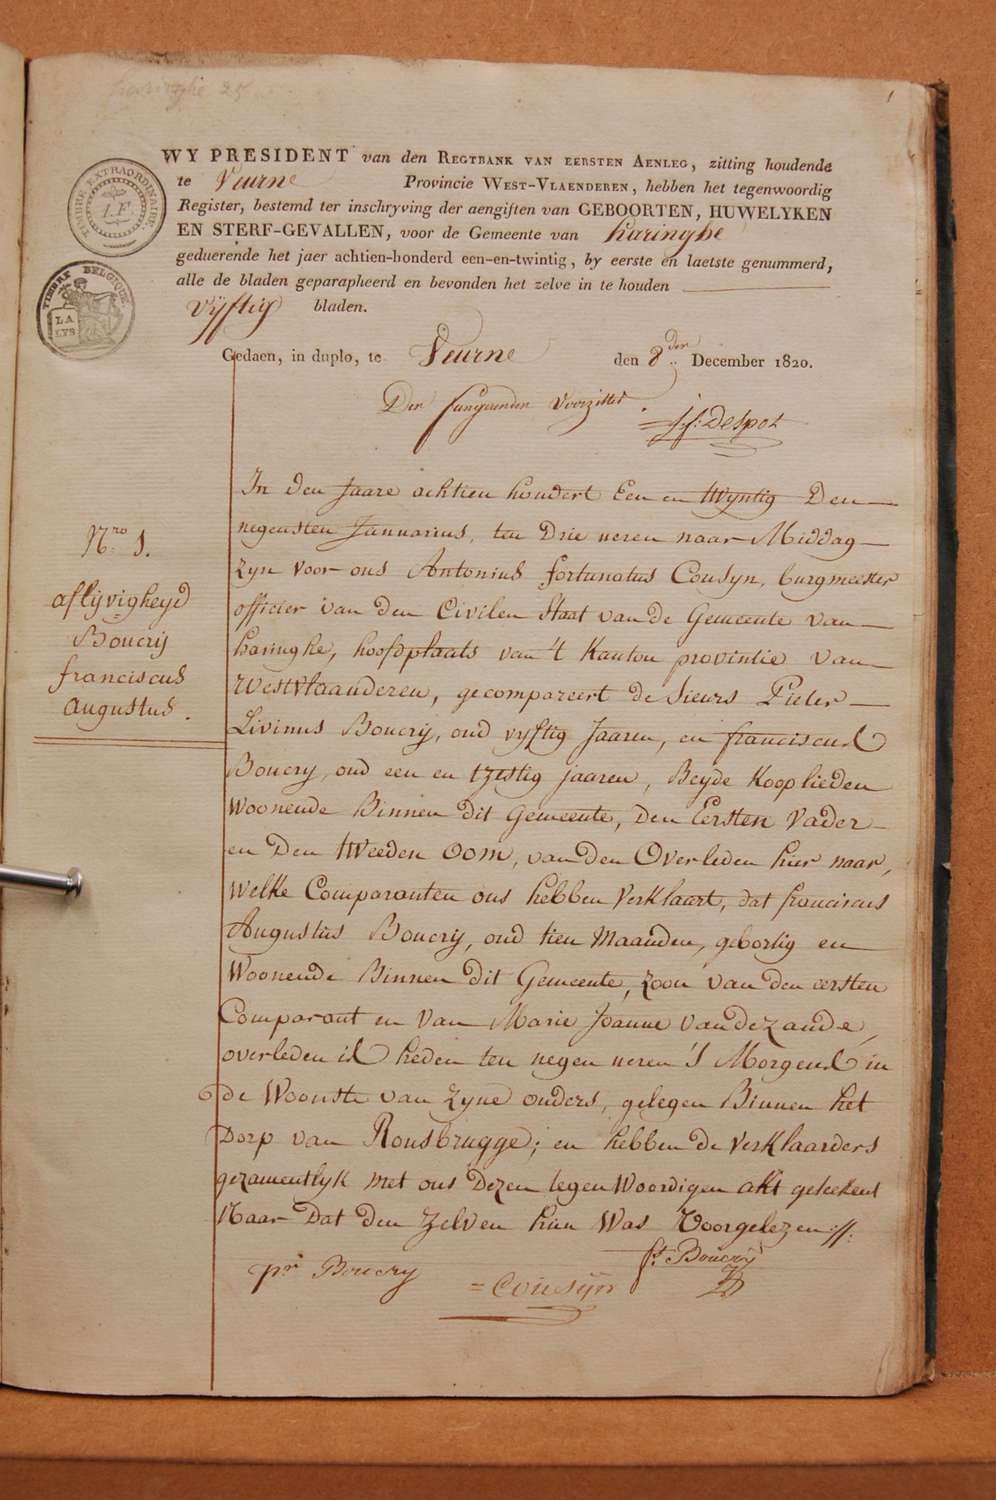 haringhe 25
1
WY PRESIDENT van den REGTBANK VAN EERSTEN AENLEG, zitting houdende
te Veurne Provincie WEST-VLAENDEREN, hebben het tegenwoordig
Register, bestemd ter inschryving der aengiften van GEBOORTEN, HUWELYKEN
EN STERF-GEVALLEN, voor de Gemeente van Haringhe
geduerende het jaer achtien-honderd een-en-twintig, by eerste en laetste genummerd,
alle de bladen geparapheerd en bevonden het zelve in te houden
vyftig bladen.
Gedaen, in duplo, te Veurne den 8.den December 1820.
Den fungerenden Voorzitter
J.f: Despot
TIMBRE EXTRAORDINAIRE
1.F.
TIMBRE BELGIQUE
LA
LYS
Nro 1.
aflyvigheyd
Boucry
franciscus
Augustus.
In den Jaare achtien hondert Een en twyntig Den
negensten Januarius, ten Drie ueren naar Middag
zyn voor ons Antonius fortunatus Cousyn, burgmeester
officier van den Civilen Staat van de Gemeente van
haringhe, hoofdplaats van 't Kanton provintie van
Westvlaanderen, gecompareert de Sieurs Pieter
Livinus Boucry, oud vyftig Jaaren, en franciscus
Boucry, oud een en tzestig jaaren, Beyde Kooplieden
Woonende Binnen dit Gemeente, Den Eersten Vader
en Den tweeden oom, van den Overleden hier naar,
Welke Comparanten ons hebben Verklaart, dat franciscus
Augustus Boucry, oud tien Maanden, gebortig en
Woonende Binnen Dit Gemeente, zoon van den eersten
Comparant en van Marie Joanne Vandezande,
overleden is heden ten negen ueren 's Morgens in
de Woonste van zyne ouders, gelegen Binnen het
Dorp van Rousbrugge; en hebben de verklaarders
gezamentlyk met ons Dezen tegenwoordigen akt geteekent
Naar Dat den Zelven hun Was Voorgelezen //:
pr Boucry
= Cousijn
fs Boucry